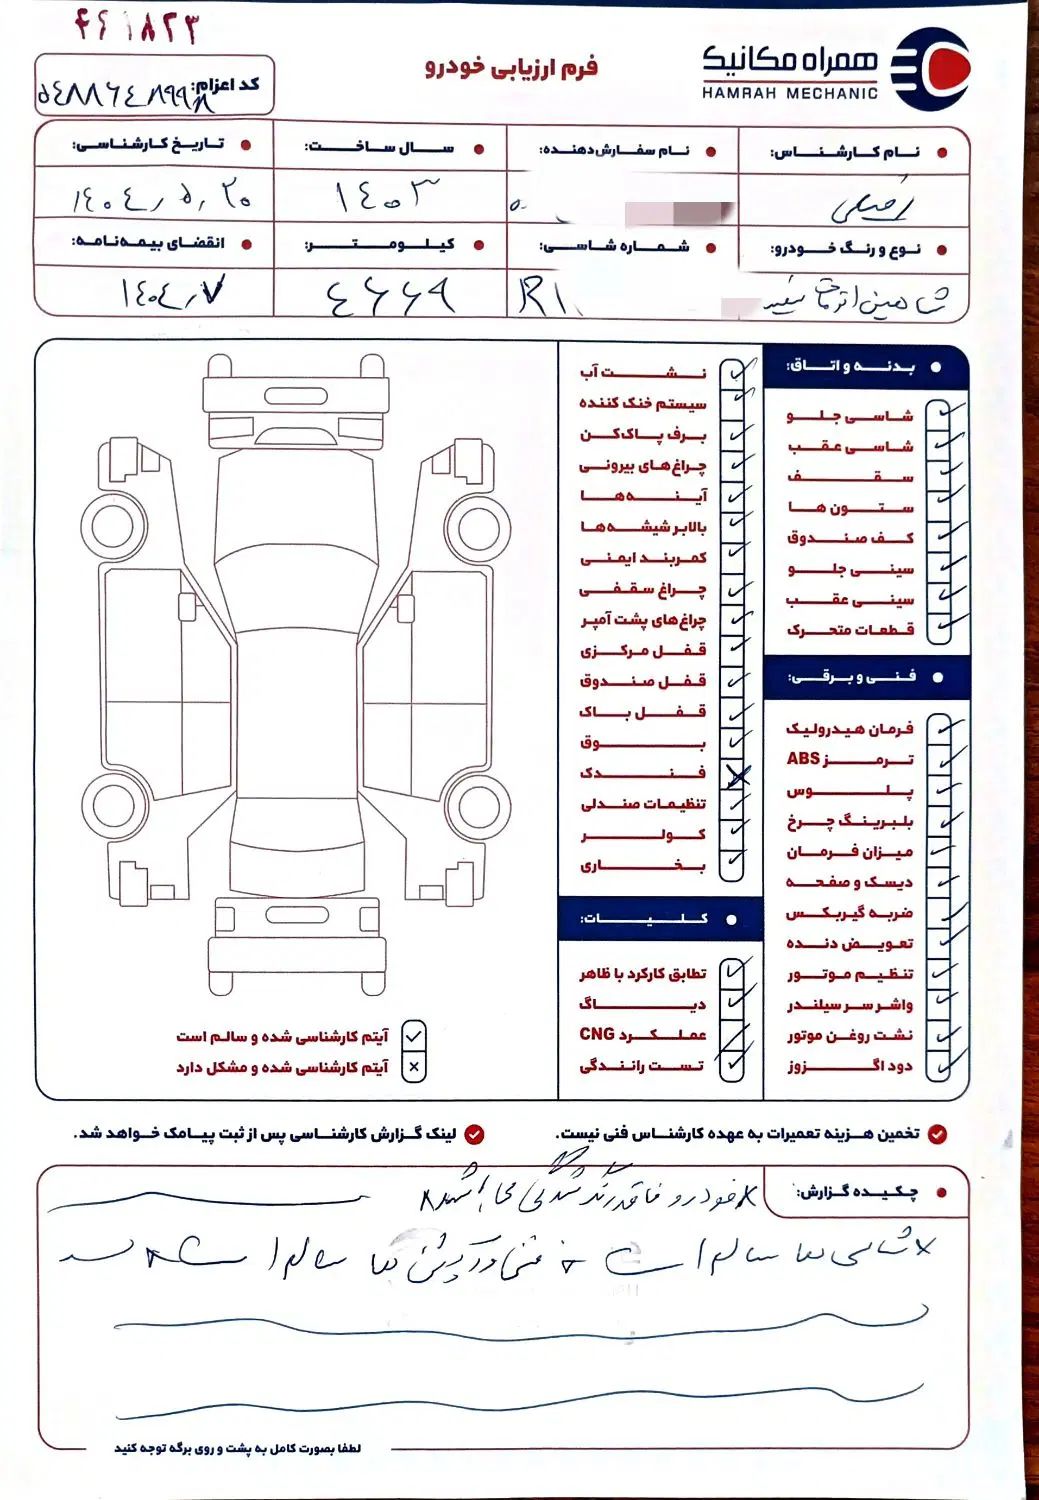 ۴۶۱۸۲۳
همراه مکانیک
HAMRAH MECHANIC
فرم ارزیابی خودرو
کد اعزام:
نام کارشناس:
نام سفارش‌دهنده:
سال ساخت: ۱۴۰۳
تاریخ کارشناسی: ۱۴۰۴٫۵٫۲۰
نوع و رنگ خودرو: شاهین اتومات سفید
شماره شاسی: R1
کیلومتر: ۴۶۶۹
انقضای بیمه‌نامه: ۱۴۰۴٫۷
بدنه و اتاق:
شاسی جلو ✓
شاسی عقب ✓
سقف ✓
ستون ها ✓
کف صندوق ✓
سینی جلو ✓
سینی عقب ✓
قطعات متحرک ✓
فنی و برقی:
فرمان هیدرولیک ✓
ترمز ABS ✓
پلوس ✓
بلبرینگ چرخ ✓
میزان فرمان ✓
دیسک و صفحه ✓
ضربه گیربکس ✓
تعویض دنده ✓
تنظیم موتور ✓
واشر سر سیلندر ✓
نشت روغن موتور ✓
دود اگزوز ✓
نشت آب ✓
سیستم خنک کننده ✓
برف پاک‌کن ✓
چراغ‌های بیرونی ✓
آینه‌ها ✓
بالابر شیشه‌ها ✓
کمربند ایمنی ✓
چراغ سقفی ✓
چراغ‌های پشت آمپر ✓
قفل مرکزی ✓
قفل صندوق ✓
قفل باک ✓
بوق ✓
فندک ×
تنظیمات صندلی ✓
کولر ✓
بخاری ✓
کلیات:
تطابق کارکرد با ظاهر ✓
دیاگ ✓
عملکرد CNG
تست رانندگی ✓
✓ آیتم کارشناسی شده و سالم است
× آیتم کارشناسی شده و مشکل دارد
تخمین هزینه تعمیرات به عهده کارشناس فنی نیست.
لینک گزارش کارشناسی پس از ثبت پیامک خواهد شد.
چکیده گزارش:
× خودرو فاقد رنگ شدگی می باشد ×
× شاسی ها سالم است × فنی و آپشن ها سالم است ×
لطفا بصورت کامل به پشت و روی برگه توجه کنید